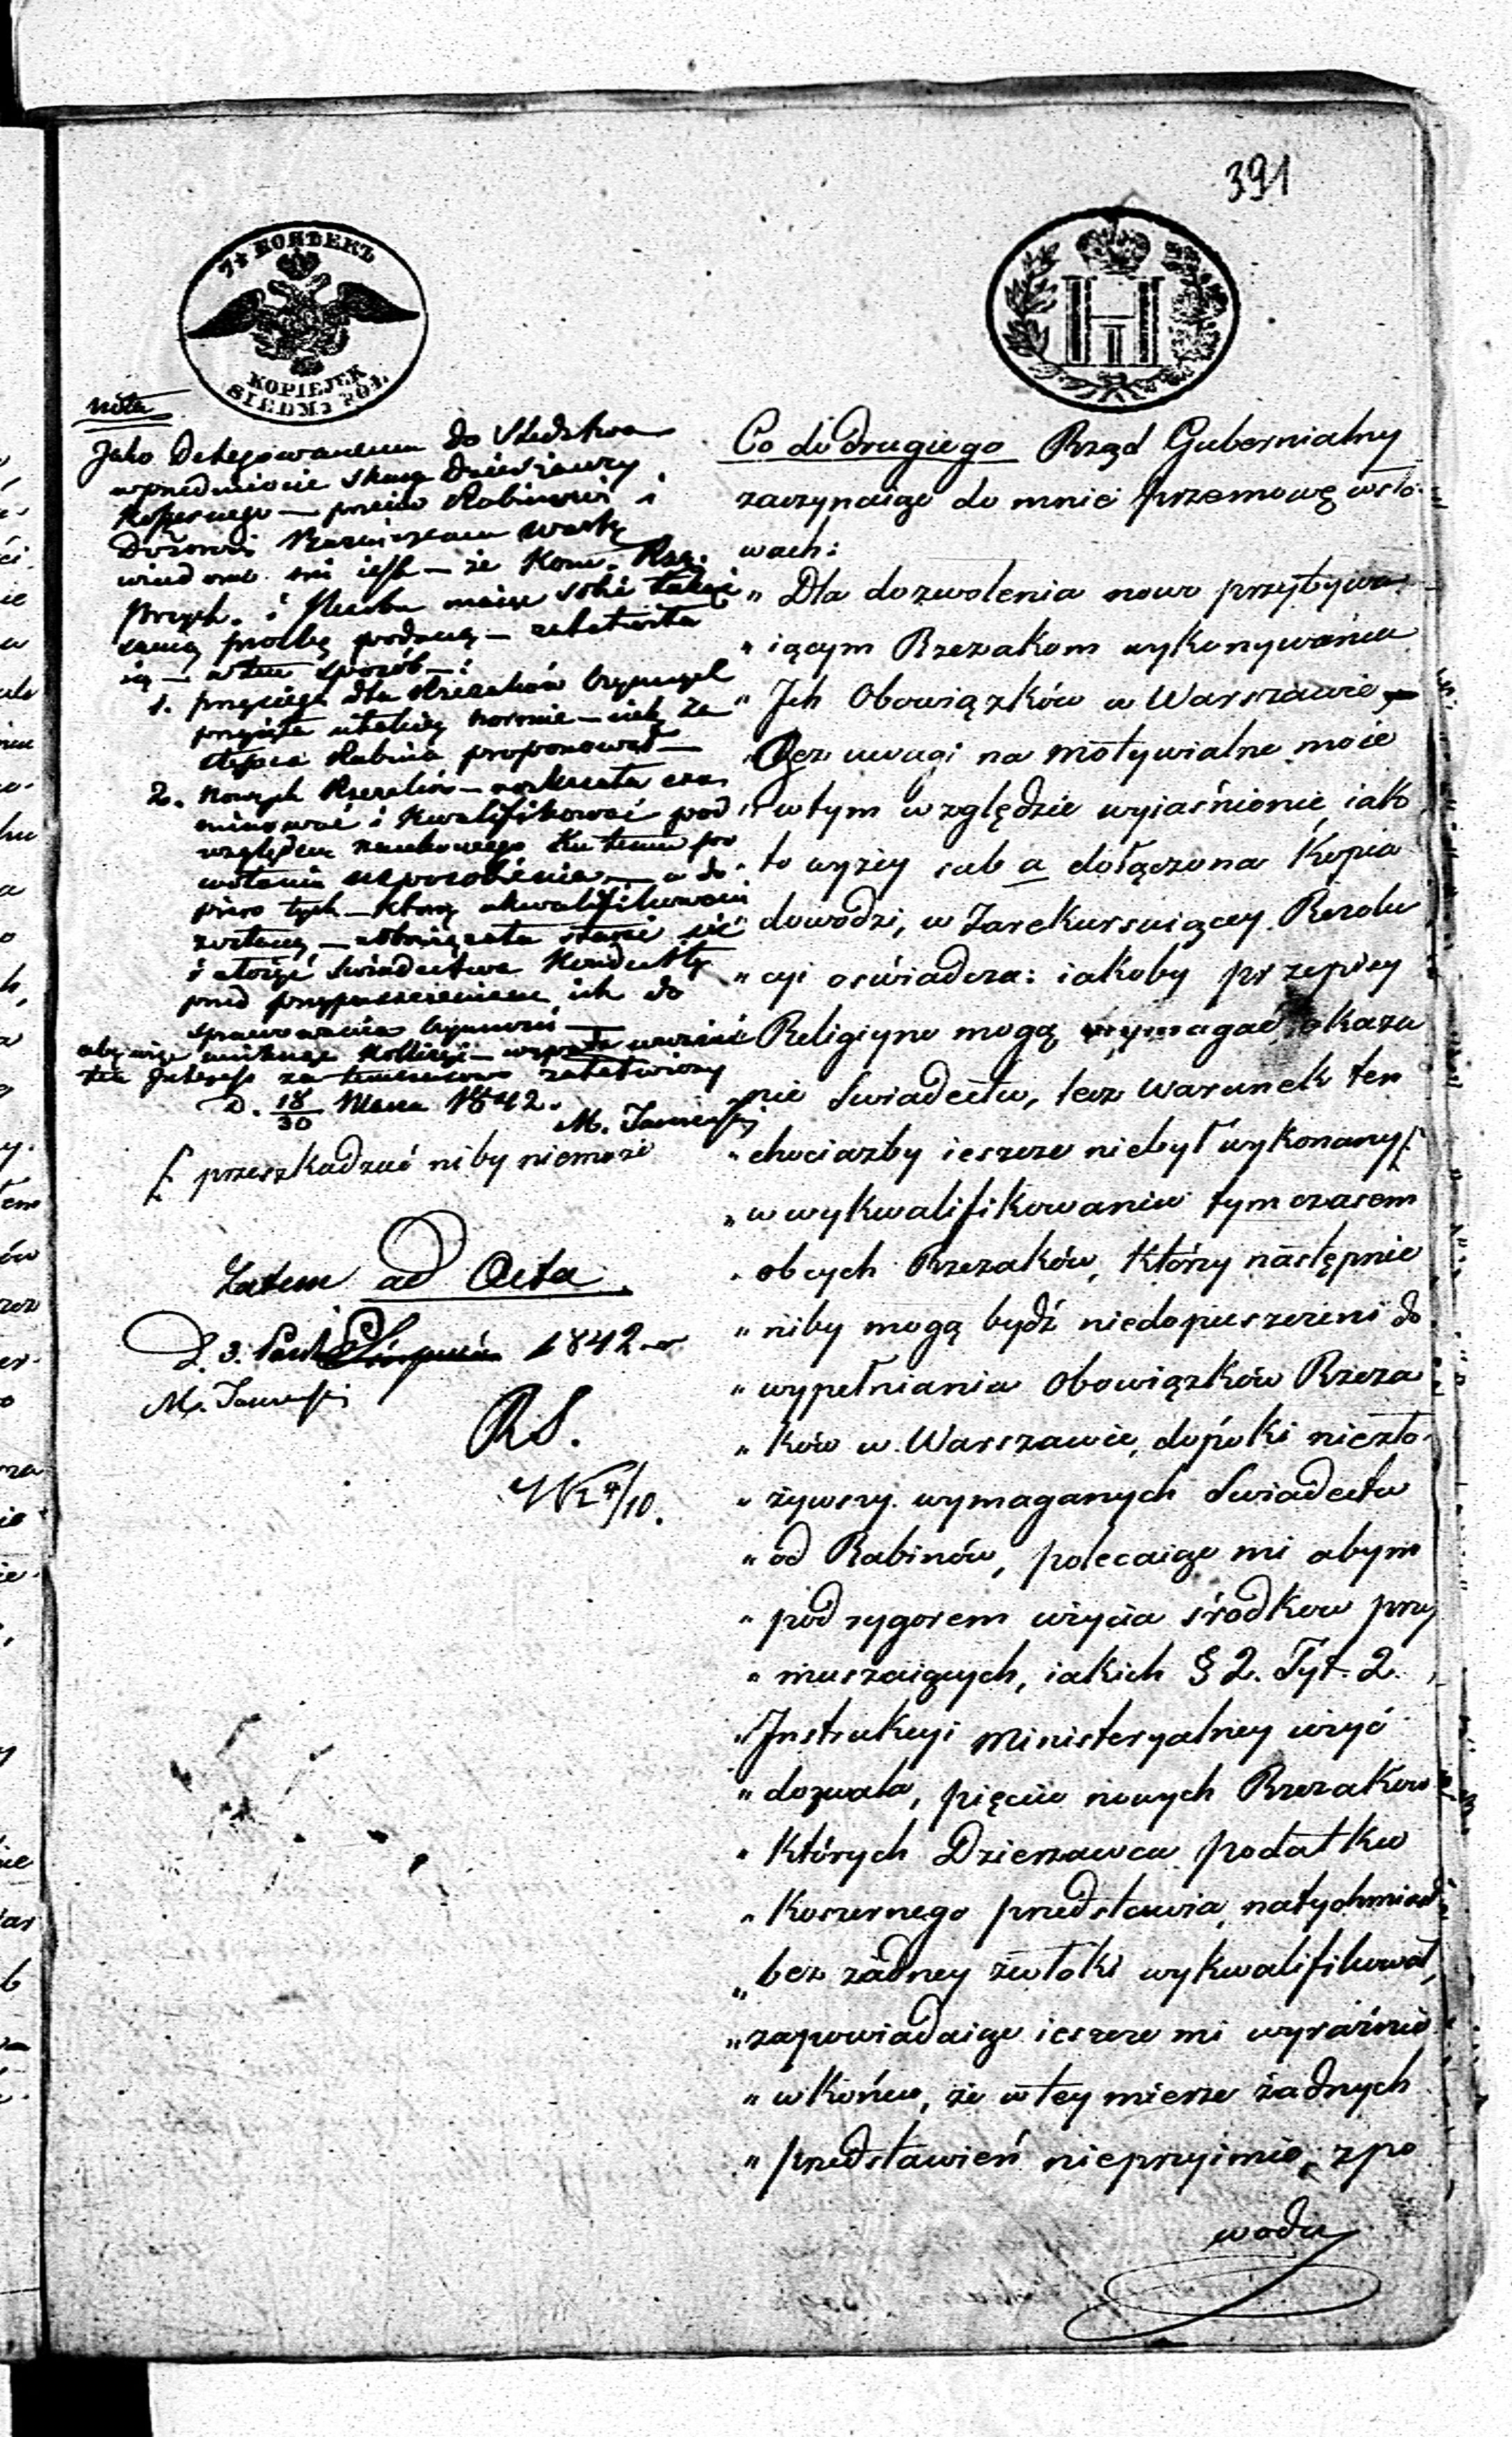 391
7½ КОПѢЕКЪ
KOPIEJEK
SIEDM i PÓŁ
H
nota
Jako Delegowanemu do Śledztwa
w przedmiocie skarg Dzierżawcy
Koszernego — przeciw Rabinowi i
Dozorowi
wiadome mi iest — że Kom. Rzą.
Przych. i Skarbu maiąc sobie takąż
samą prośbę podaną — załatwiła
ią — w ten sposób — :
1. przysięgę dla Rzezaków
przyięła
Rabina proponował —
2. Nowych Rzezaków —
i kwalifikować pod
względem naukowego
usposobienia — a do
piero tych — którzy ukwalifikowani
zostaną — starać się
i złożyć świadectwa Konduity
przed przypuszczeniem ich do
sprawowania czynności —
ten Interess za tymczasowo załatwiony
D. 18/30 Marca 1842.
M.
[ przeszkadzać niby niemoże
Zatem ad Acta.
D. 3. Paźd 1842 r
M.
RS.
4/10.
Co do drugiego Rząd Gubernialny
zaczynaiąc do mnie przemowę w sło-
wach:
„ Dla dozwolenia nowo przybywa-
„ iącym Rzezakom wykonywania
„ Ich Obowiązków w Warszawie,
„ Bez uwagi na motywialne moie
„ w tym względzie wyiaśnienie, iak
„ to wyżey sub a dołączona Kopia
„ dowodzi, w Zarekursuiącey Rezolu
„ cyi oświadcza: iakoby przepisy
Religiyne mogą wymagać okaza
„ nie Świadectw, lecz warunek ten
„ chociażby ieszcze niebył wykonany [
„ w wykwalifikowaniu tymczasem
„ obcych Rzezaków, którzy następnie
„ niby mogą bydź niedopuszczeni do
„ wypełniania Obowiązków Rzeza
„ ków w Warszawie, dopóki niezło-
„ żywszy wymaganych Świadectw
„ od Rabinów, polecaiąc mi abym
„ pod rygorem użycia środków przy
„ muszaiących, iakich § 2. Tyt. 2.
„ Instrukcyi Ministeryalney użyć
„ dozwala, pięciu nowych Rzezaków
„ których Dzierżawca podatku
„ Koszernego przedstawia, natychmiast
„ bez żadney zwłoki wykwalifikował,
„ zapowiadaiąc ieszcze mi wyraźnie
„ w końcu, że w tey mierze żadnych
„ przedstawień nieprzyimie, z po
wodu